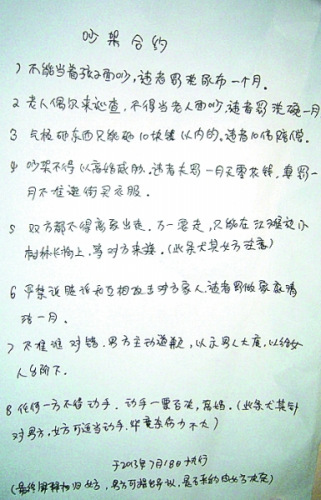 吵架合约
1 不能当着孩子面吵,违者罚洗尿布一个月。
2 老人偶尔来巡查,不得当老人面吵,违者罚洗碗一月
3 气极砸东西只能砸10块钱以内的,违者10倍赔偿。
4 吵架不得以离婚威胁,违者夫罚一月无零花钱,妻罚一
月不准逛街买衣服。
5 双方都不得离家出走,万一要走,只能在江滩边小
树林长椅上,等对方来接。(此条尤其女方注意)
6 严禁说脏话和互相攻击对方家人,违者罚做家庭清
洁一月。
7 不准谁对错,男方主动道歉,以示男人大度,以给女
人台阶下。
8 任何一方不得动手,动手一票否决,离婚。(此条尤其针
对男方,女方可适当动手,毕竟杀伤力不大)
于2013年7月18日执行
(最终解释权归女方,男方可提出异议,是否采纳由女方决定)